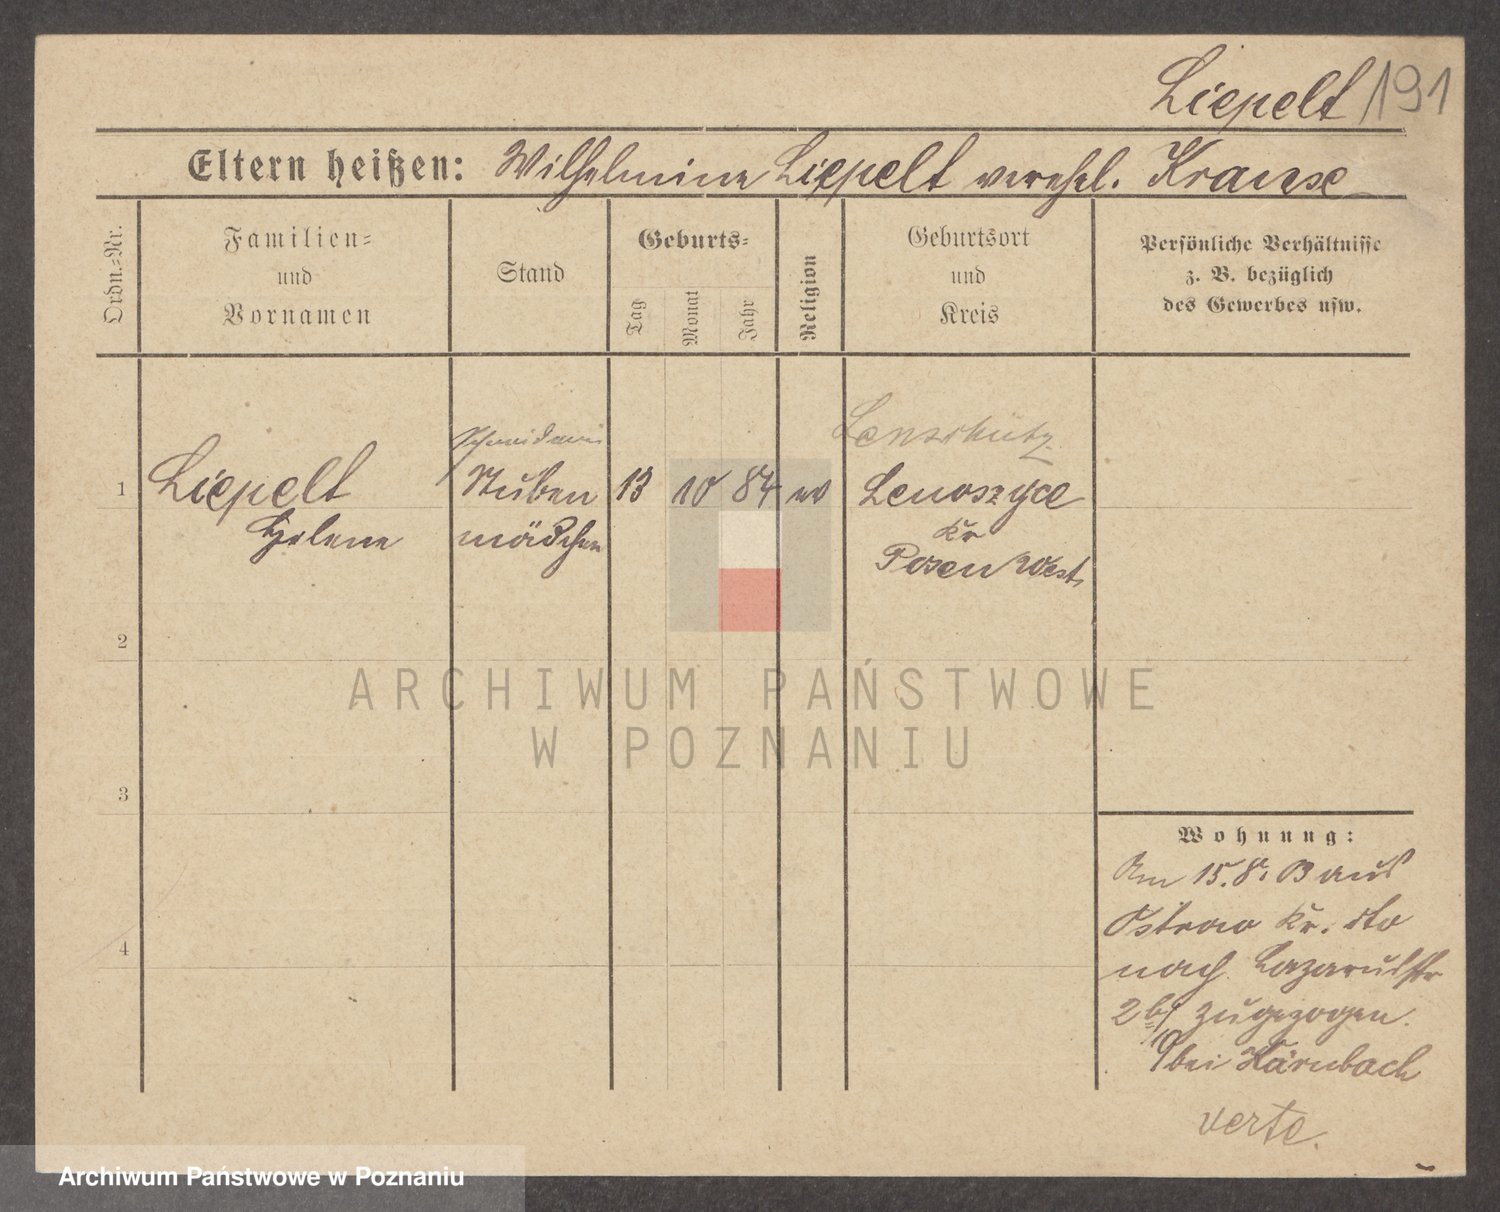 Liepelt 191
Eltern heißen: Wilhelmine Liepelt verehel. Krause
Ordn.-Nr.
Familien-
und
Vornamen
Stand
Geburts-
Tag
Monat
Jahr
Religion
Geburtsort
und
Kreis
Persönliche Verhältnisse
z. B. bezüglich
des Gewerbes usw.
Schneiderin
Lenschütz
1 Liepelt Stuben 13 10 84 ev Lenoszyce
Helene mädchen Kr
Posen West
2
3
4
Wohnung:
Am 15.8.03 aus
Ostrow Kr. dto
nach Lazarusstr
2b/10 zugezogen.
bei Kärnbach
verte.
ARCHIWUM PAŃSTWOWE
W POZNANIU
Archiwum Państwowe w Poznaniu